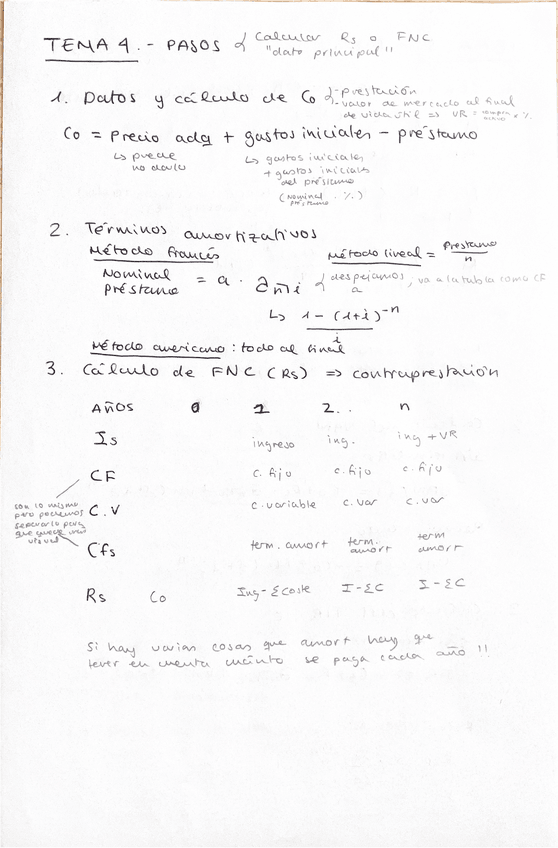 TEMA 4.- PASOS { Calcular Rs o FNC
"dato principal"
1. Datos y cálculo de Co {-prestación
-valor de mercado al final
de vida útil => VR = · %
Co = Precio adq + gastos iniciales - préstamo
↳ puede
no darlo
↳ gastos iniciales
+ gastos iniciales
del préstamo
(nominal préstamo · %)
2. Términos amortizativos
Método francés
Nominal préstamo = a · a n¬i { despejamos a, va a la tabla como CF
↳ 1 - (1+i)^-n / i
Método lineal = Préstamo / n
Método americano: todo al final
3. Cálculo de FNC (Rs) => contraprestación
Años 0 1 2.. n
Is ingreso ing. ing + VR
CF c. fijo c. fijo c. fijo
son lo mismo
pero podemos
separarlo para
que quede más
visual
C.V c. variable c. var c. var
Cfs term. amort term. amort term amort
Rs Co Ing-Σcoste I-ΣC I-ΣC
Si hay varias cosas que amort hay que
tener en cuenta cuánto se paga cada año !!